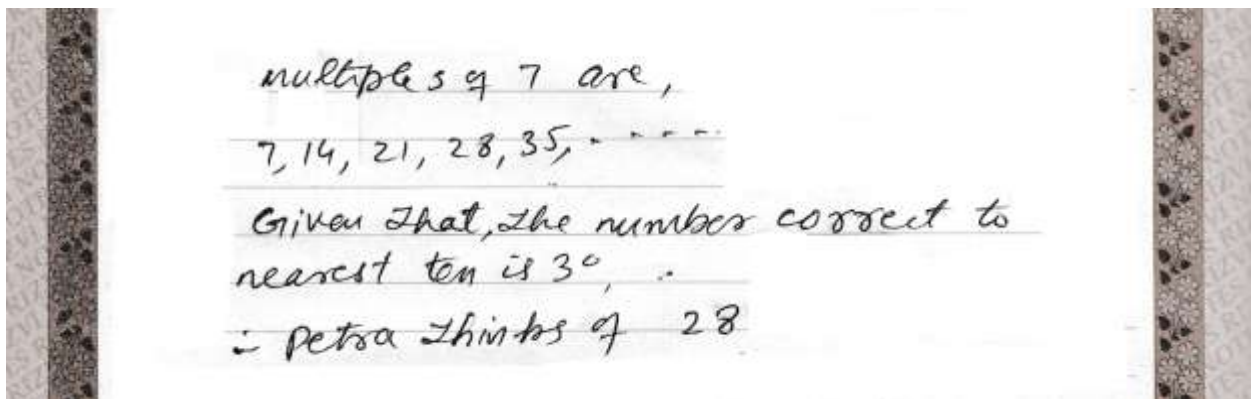 multiples of 7 are,
7, 14, 21, 28, 35, - - - -
Given that, the number correct to
nearest ten is 30,
∴ Petra thinks of 28